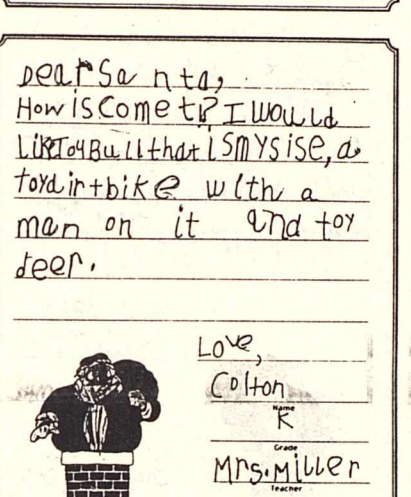 Dear Santa,
How is Comet? I would
Like Toy Bull that is my sise, a
toy dirt bike with a
man on it and toy
deer.
Love,
Colton
Name
K
Grade
Mrs. Miller
Teacher